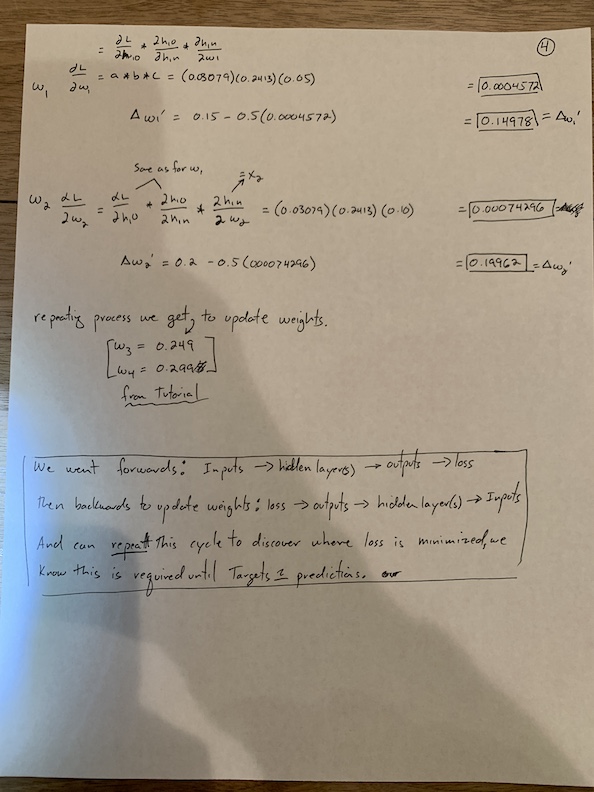 ④
= ∂L/∂h₁₀ * ∂h₁₀/∂h₁ₙ * ∂h₁ₙ/∂w₁
w₁ ∂L/∂w₁ = a * b * c = (0.03079)(0.2413)(0.05) = 0.0004572
Δw₁' = 0.15 - 0.5(0.0004572) = 0.14978 = Δw₁'
Same as for w₁ = x₂
w₂ ∂L/∂w₂ = ∂L/∂h₁₀ * ∂h₁₀/∂h₁ₙ * ∂h₁ₙ/∂w₂ = (0.03079)(0.2413)(0.10) = 0.00074296
Δw₂' = 0.2 - 0.5(000074296) = 0.19962 = Δw₂'
repeating process we get, to update weights.
[w₃ = 0.249
w₄ = 0.299]
from Tutorial
We went forwards: Inputs → hidden layer(s) → outputs → loss
then backwards to update weights: loss → outputs → hidden layer(s) → Inputs
And can repeat This cycle to discover where loss is minimized, we
Know this is required until Targets predictions.